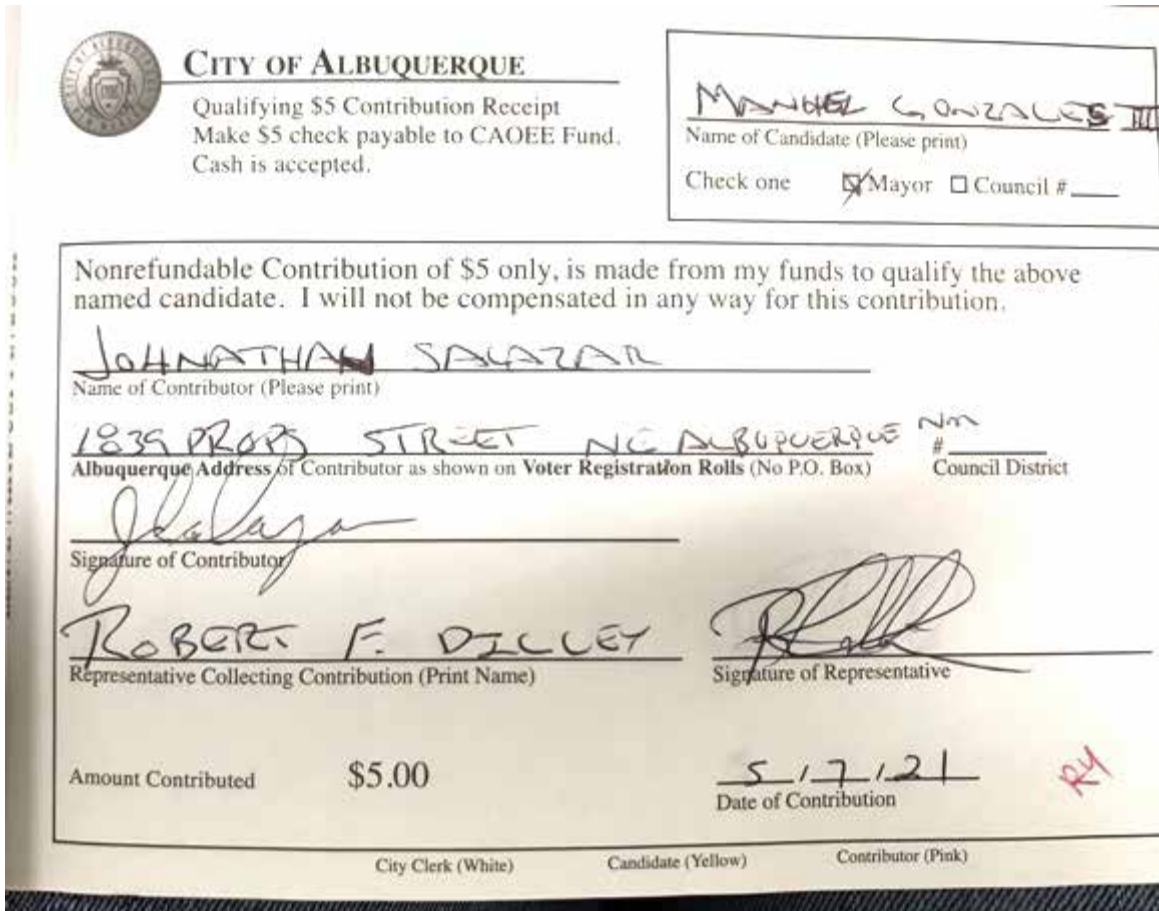 CITY OF ALBUQUERQUE
Qualifying $5 Contribution Receipt
Make $5 check payable to CAOEE Fund.
Cash is accepted.
MANUEL GONZALES III
Name of Candidate (Please print)
Check one Mayor Council #
Nonrefundable Contribution of $5 only, is made from my funds to qualify the above
named candidate. I will not be compensated in any way for this contribution.
JOHNATHAN SALAZAR
Name of Contributor (Please print)
1839 PROPS STREET NE ALBUQUERQUE NM
#
Albuquerque Address of Contributor as shown on Voter Registration Rolls (No P.O. Box) Council District
Signature of Contributor
ROBERT F. DILLEY
Representative Collecting Contribution (Print Name) Signature of Representative
Amount Contributed $5.00 5/7/21
Date of Contribution
RY
City Clerk (White) Candidate (Yellow) Contributor (Pink)